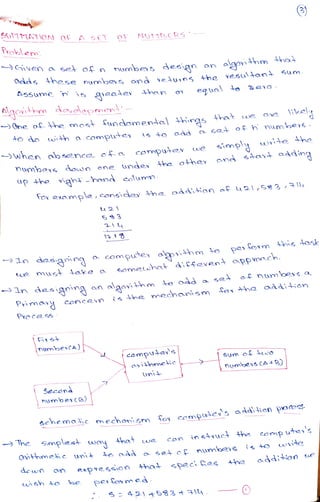 3
SUMMATION OF A SET OF NUMBERS:-
Problem:
→Given a set of n numbers design an algorithm that
adds these numbers and returns the resultant sum.
Assume 'n' is greater than or equal to zero.
Algorithm development:-
→One of the most fundamental things that we are likely
to do with a computer is to add a set of n numbers.
→When absence of a computer we simply write the
numbers down one under the other and start adding
up the right-hand column.
For example, consider the addition of 421, 583, 714
421
583
214
1218
→In designing a computer algorithm to perform this task
we must take a somewhat different approach.
→In designing an algorithm to add a set of numbers a
Primary concern is the mechanism for the addition
Process.
First
number(A)
computer's
arithmetic
unit
sum of two
numbers (A+B)
Second
number(B)
schematic mechanism for computer's addition process
→The simplest way that we can instruct the computer's
arithmetic unit to add a set of numbers is to write
down an expression that specifies the addition we
wish to be performed.
∴ S = 421+583+714 — ①